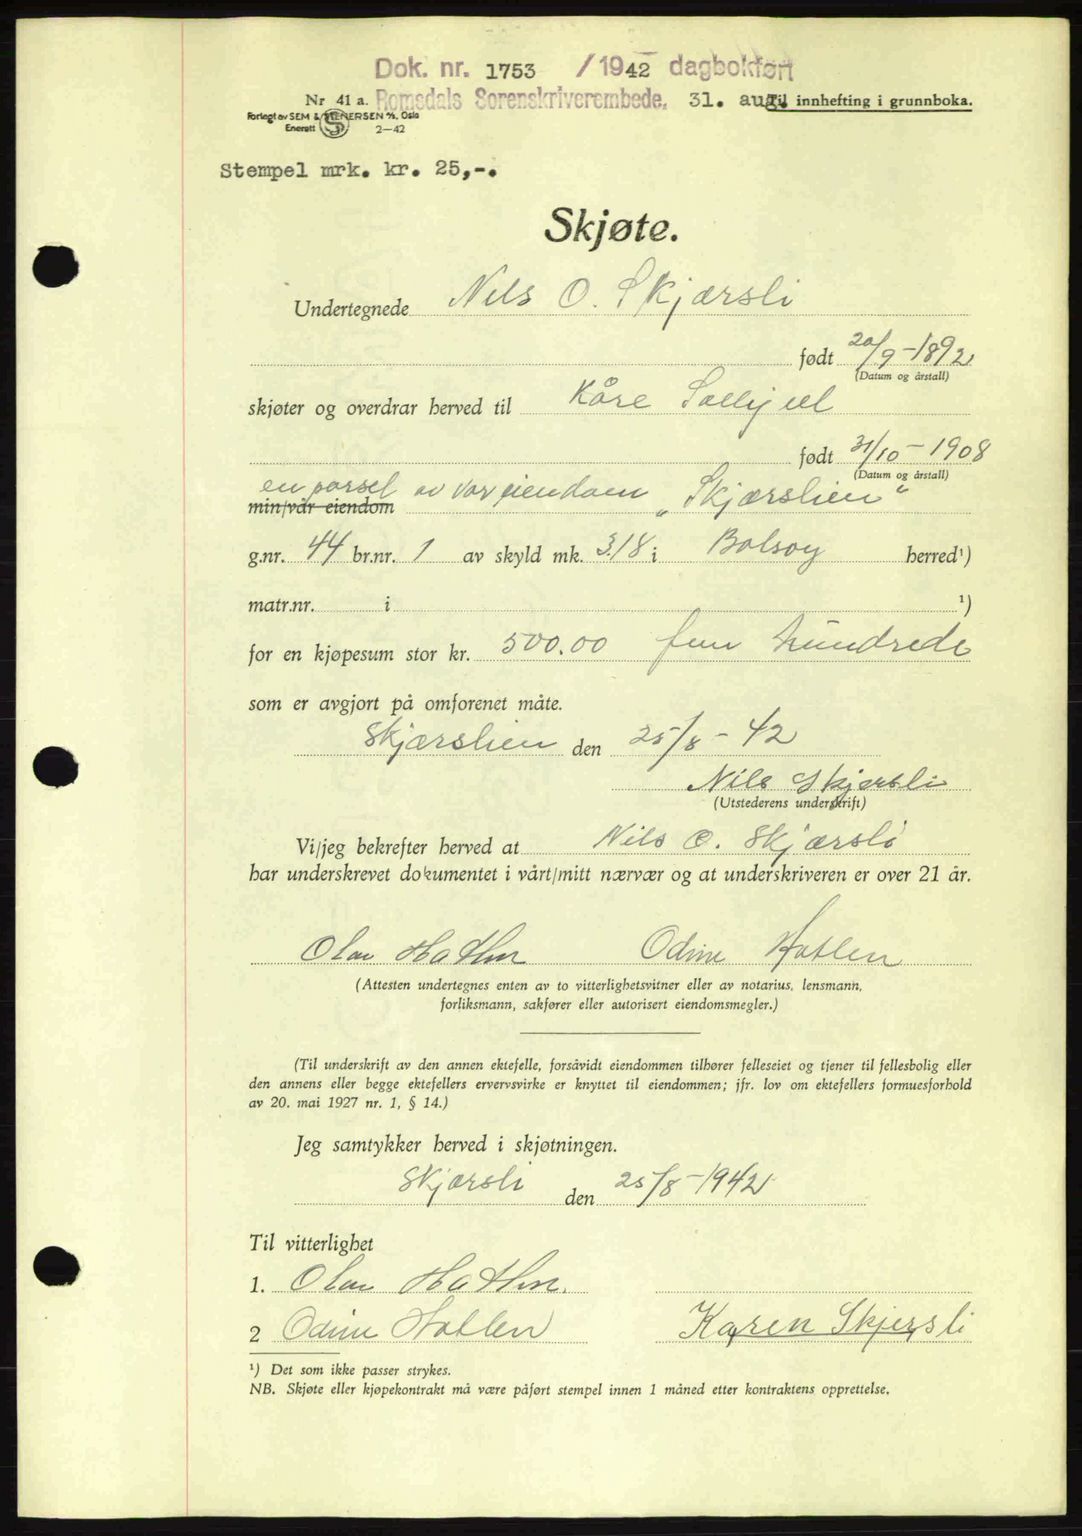 Dok. nr. 1753 /1942 dagbokført
Nr 41 a. Romsdals Sorenskriverembede, 31. aug. Til innhefting i grunnboka.
Forlegt av SEM & STENERSEN A/S, Oslo
Enerett S 2—42
Stempel mrk. kr. 25,-.
Skjøte.
Undertegnede Nils O. Skjærsli
født 20/9-1892
(Datum og årstall)
skjøter og overdrar herved til Kåre Sollijell
født 31/10-1908
(Datum og årstall)
en parsel av vor eiendom „Skjærslien“
min/vår eiendom
g.nr. 44 br.nr. 1 av skyld mk. 3.18 i Bolsøy herred¹)
matr.nr. i ¹)
for en kjøpesum stor kr. 500.00 fem hundrede
som er avgjort på omforenet måte.
Skjærslien den 25/8-42
Nils Skjærsli
(Utstederens underskrift)
Vi/jeg bekrefter herved at Nils O. Skjærsli
har underskrevet dokumentet i vårt/mitt nærvær og at underskriveren er over 21 år.
Olav Hatlen Odine Hatlen
(Attesten undertegnes enten av to vitterlighetsvitner eller av notarius, lensmann,
forliksmann, sakfører eller autorisert eiendomsmegler.)
(Til underskrift av den annen ektefelle, forsåvidt eiendommen tilhører felleseiet og tjener til fellesbolig eller
den annens eller begge ektefellers ervervsvirke er knyttet til eiendommen; jfr. lov om ektefellers formuesforhold
av 20. mai 1927 nr. 1, § 14.)
Jeg samtykker herved i skjøtningen.
Skjærsli den 25/8-1942
Til vitterlighet
1. Olav Hatlen.
2 Odine Hatlen Karen Skjersli
¹) Det som ikke passer strykes.
NB. Skjøte eller kjøpekontrakt må være påført stempel innen 1 måned etter kontraktens opprettelse.